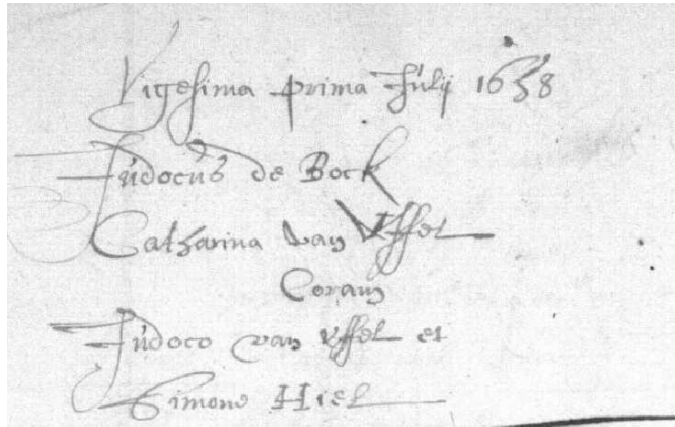 Vigesima prima Julij 1658
Judocus de Bock
Catharina van Uffel
Coram
Judoco van Uffel et
Simone Hiel